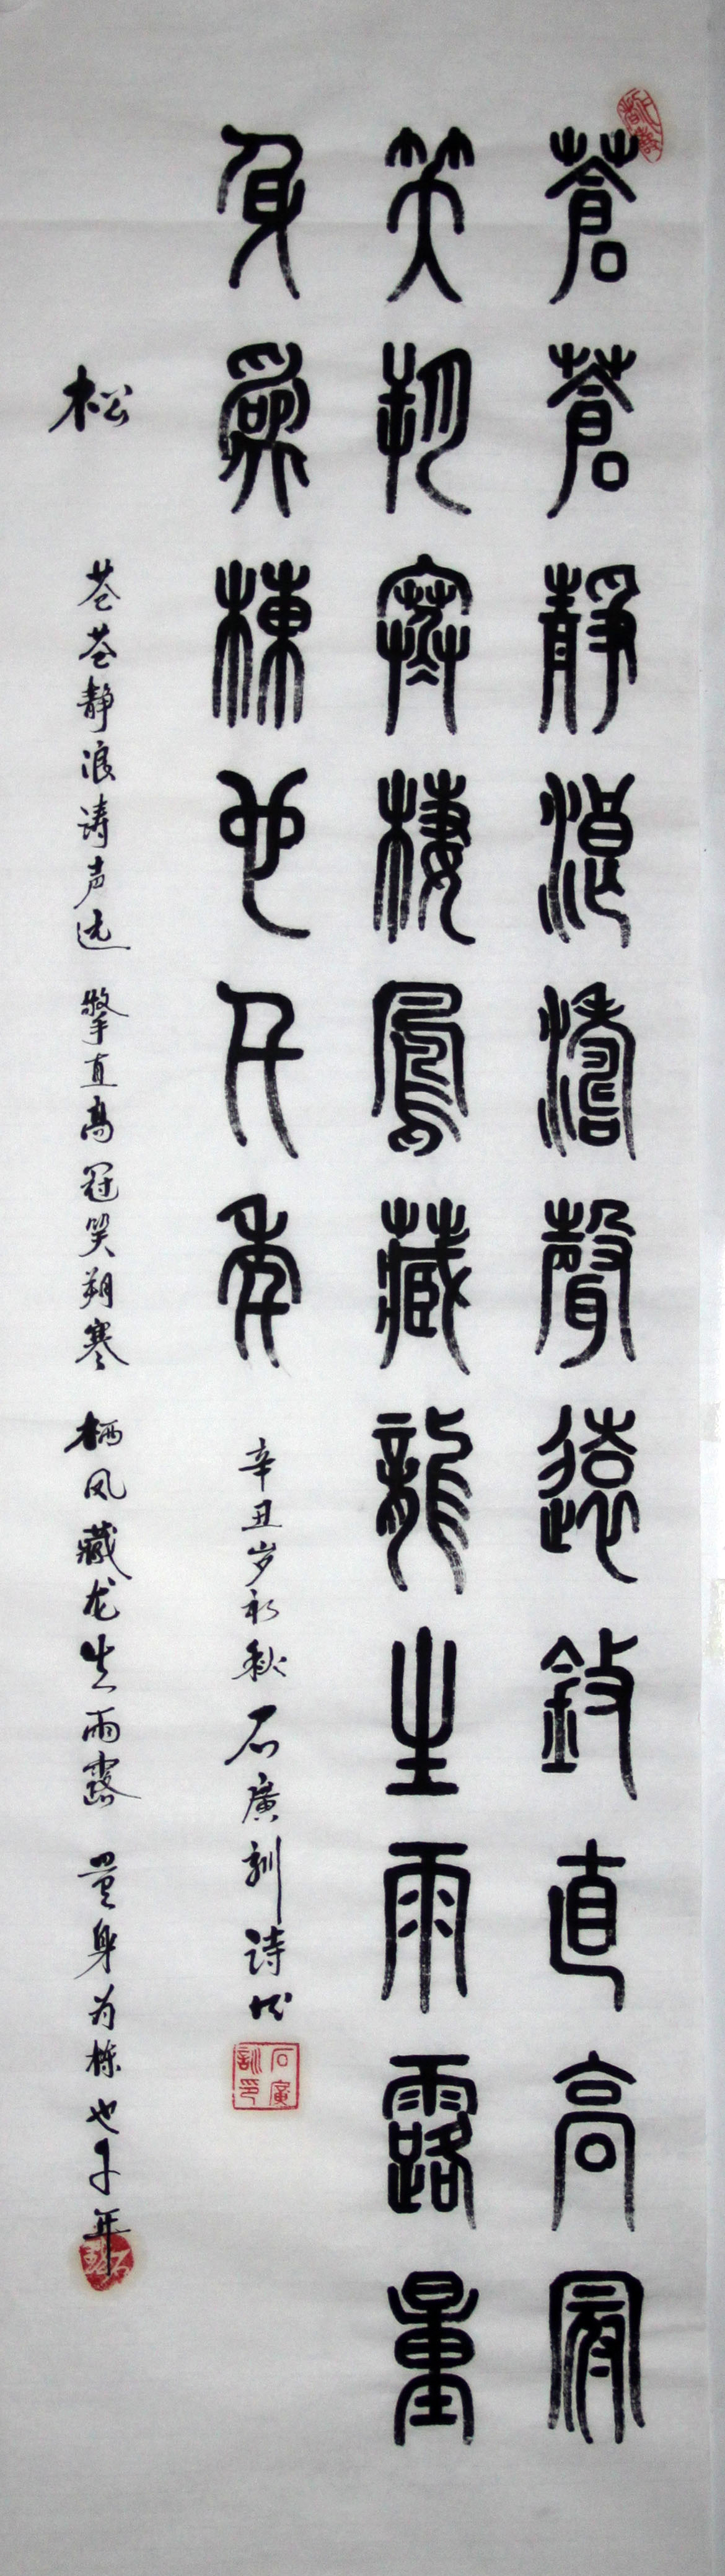 蒼蒼靜浪濤聲遠擎直高冠
笑朔寒棲鳳藏龍生雨露量
身爲棟也千年
辛丑岁初秋石廣訓诗书
石廣訓印
松 苍苍静浪涛声远 擎直高冠笑朔寒 栖凤藏龙生雨露 量身为栋也千年